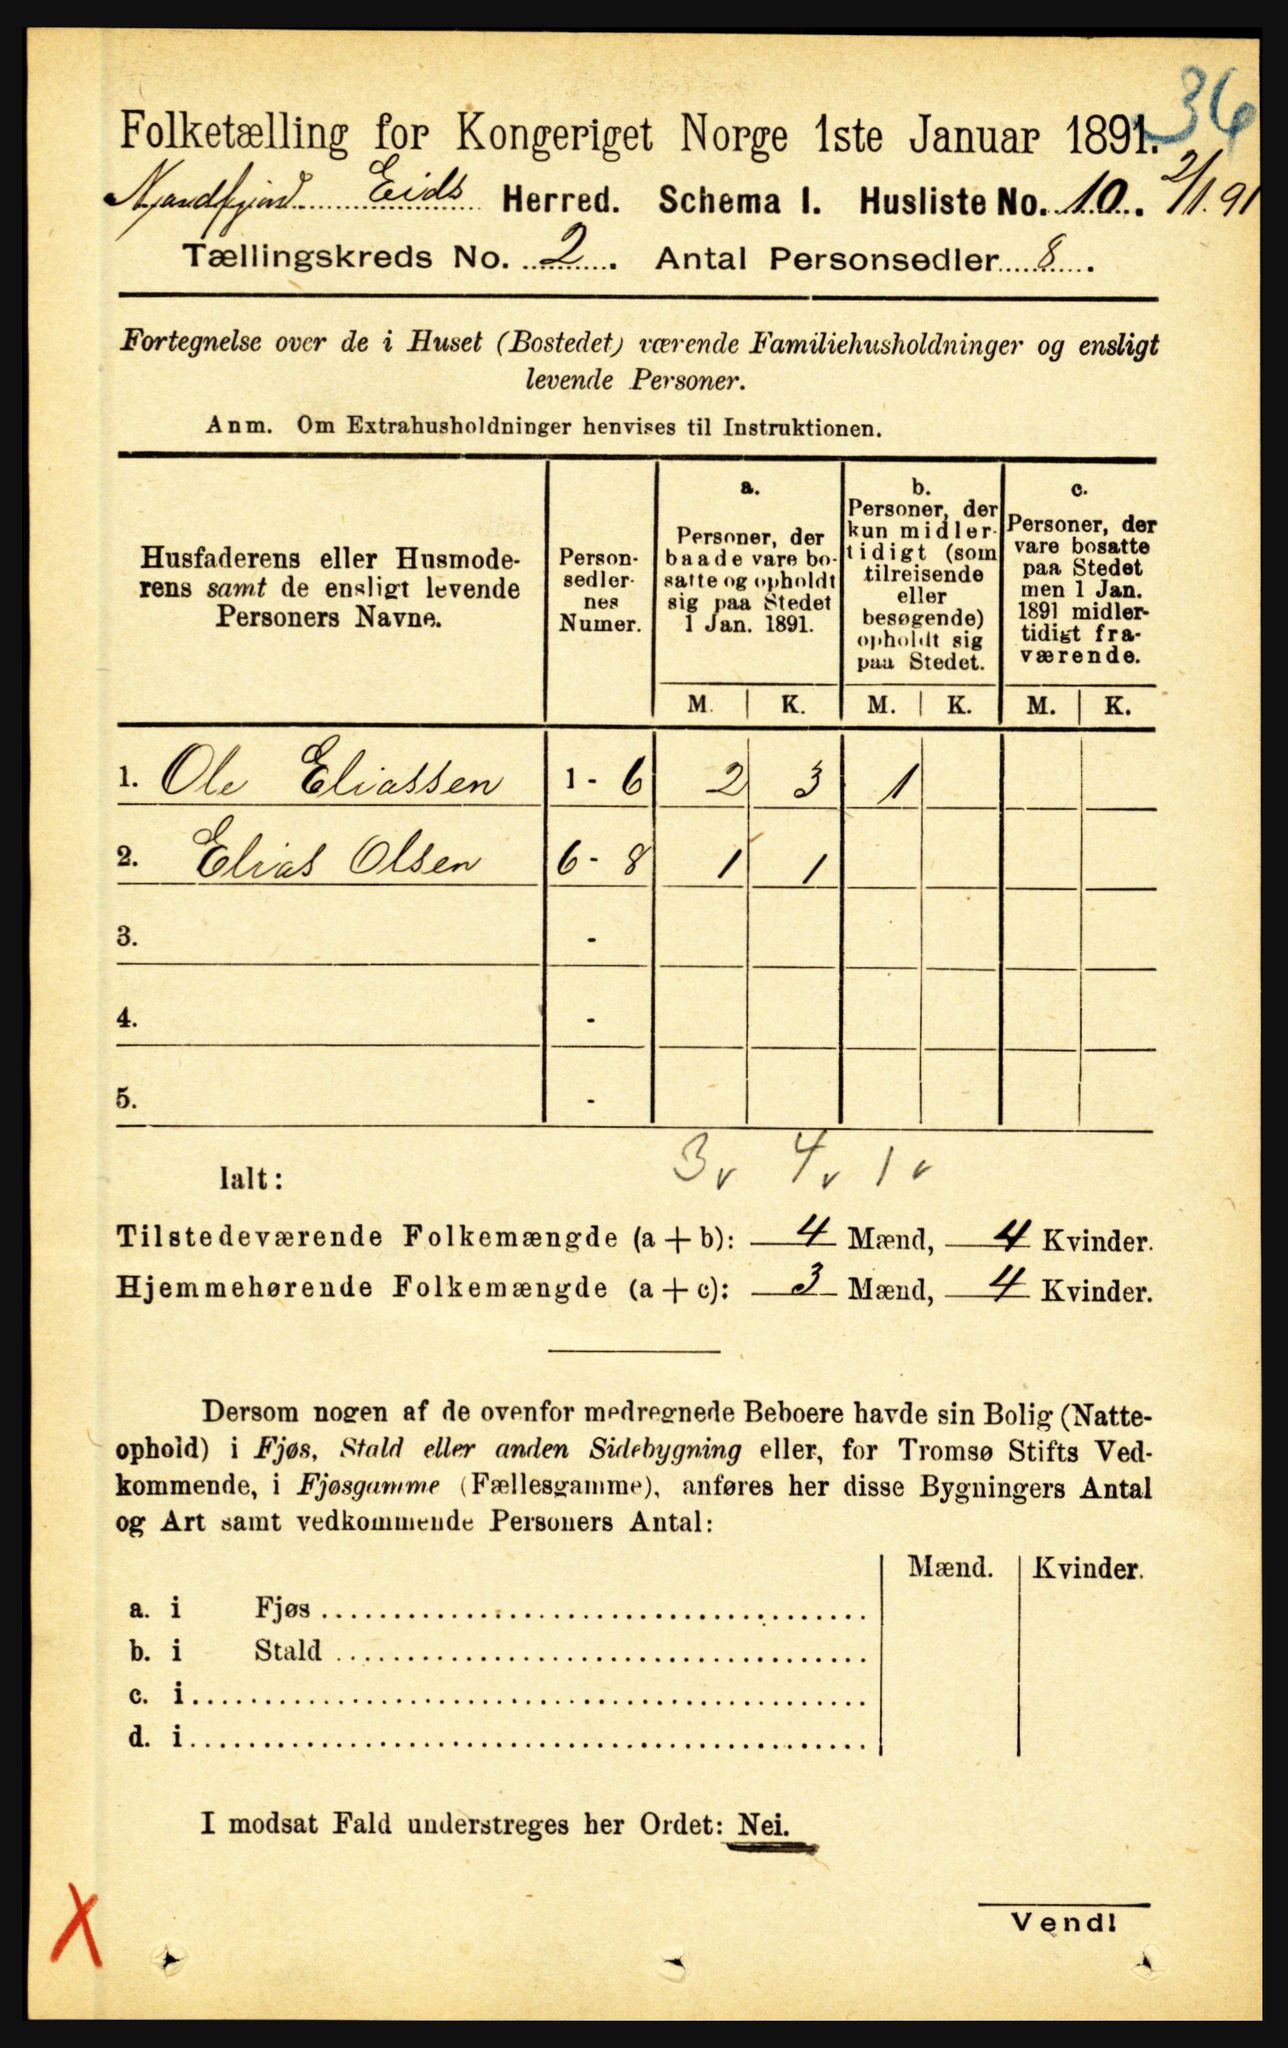 36
Folketælling for Kongeriget Norge 1ste Januar 1891.
Eids Herred. Schema I. Husliste No. 10. 2/1.91
Tællingskreds No. 2. Antal Personsedler 8.
Fortegnelse over de i Huset (Bostedet) værende Familiehusholdninger og ensligt
levende Personer.
Anm. Om Extrahusholdninger henvises til Instruktionen.
Husfaderens eller Husmode-
rens samt de ensligt levende
Personers Navne.
Person-
sedler-
nes
Numer.
a.
Personer, der
baade vare bo-
satte og opholdt
sig paa Stedet
1 Jan. 1891.
b.
Personer, der
kun midler-
tidigt (som
tilreisende
eller
besøgende)
opholdt sig
paa Stedet.
c.
Personer, der
vare bosatte
paa Stedet
men 1 Jan.
1891 midler-
tidigt fra-
værende.
M. K. M. K. M. K.
1. Ole Eliassen 1 - 6 2 3 1
2. Elias Olsen 6 - 8 1 1
3. -
4. -
5. -
Ialt: 3 v 4 v 1 v
Tilstedeværende Folkemængde (a + b): 4 Mænd, 4 Kvinder.
Hjemmehørende Folkemængde (a + c): 3 Mænd, 4 Kvinder.
Dersom nogen af de ovenfor medregnede Beboere havde sin Bolig (Natte-
ophold) i Fjøs, Stald eller anden Sidebygning eller, for Tromsø Stifts Ved-
kommende, i Fjøsgamme (Fællesgamme), anføres her disse Bygningers Antal
og Art samt vedkommende Personers Antal:
Mænd. Kvinder.
a. i Fjøs
b. i Stald
c. i
d. i
I modsat Fald understreges her Ordet: Nei.
Vend!
X